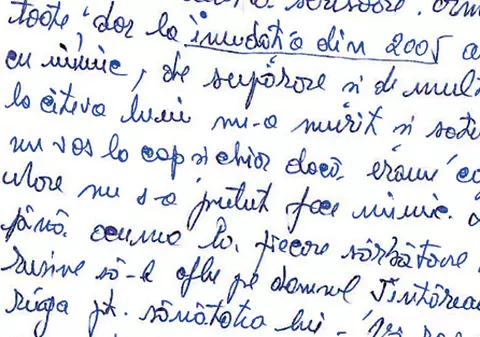 toate, dar la inundatia din 2005 a
cu nimic, de supărare si de mult
la câteva luni mi-a murit si sotu
nu vas la cap si chiar dacă, eram
s-a putut face nimic.
până. acuma la. fiecare sărbătoare
rusine să-l aflu pe domnul Tintărea
ruga pt. sănătatea lui -